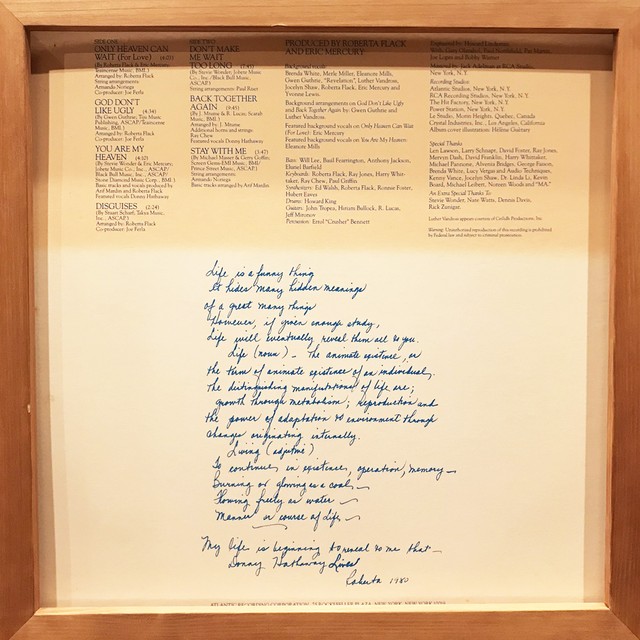 SIDE ONE
ONLY HEAVEN CAN
WAIT (For Love) (4:02)
(By Roberta Flack & Eric Mercury;
Arranged by: Roberta Flack
String arrangements:
Armando Noriega
Co-producer: Joe Ferla
GOD DON'T
LIKE UGLY (4:34)
(By Gwen Guthrie;
Publishing, ASCAP/Teamcruise
Music, BMI.)
Arranged by: Roberta Flack
Co-producer: Joe Ferla
YOU ARE MY
HEAVEN (4:10)
(By Stevie Wonder & Eric Mercury;
Jobete Music Co., Inc., ASCAP/
Black Bull Music, Inc., ASCAP/
Stone Diamond Music Corp., BMI.)
Basic tracks and vocals produced by
Arif Mardin and Roberta Flack
Featured vocals Donny Hathaway
DISGUISES (2:54)
(By Stuart Scharf;
Inc., ASCAP)
Arranged by: Roberta Flack
Co-producer: Joe Ferla
SIDE TWO
DON'T MAKE
ME WAIT
TOO LONG
(By Stevie Wonder; Jobete Music
Co., Inc./Black Bull Music
ASCAP.)
String arrangements: Paul Riser
BACK TOGETHER
AGAIN
(By J. Mtume & R. Lucas; Scarab
Music, BMI.)
Arranged by: J. Mtume
Additional horns and strings:
Ray Chew
Featured vocals Donny Hathaway
STAY WITH ME (3:47)
(By Michael Masser & Gerry Goffin;
Screen Gems-EMI Music, BMI/
Prince Street Music, ASCAP.)
String arrangements:
Armando Noriega
Basic tracks produced by Arif Mardin
PRODUCED BY ROBERTA FLACK
AND ERIC MERCURY
Background vocals:
Brenda White, Merle Miller, Eleanore Mills,
Gwen Guthrie, "Revelation", Luther Vandross,
Jocelyn Shaw, Roberta Flack, Eric Mercury and
Yvonne Lewis.
Background arrangements on God Don't Like Ugly
and Back Together Again by: Gwen Guthrie and
Luther Vandross.
Featured background vocals on Only Heaven Can Wait
(For Love): Eric Mercury
Featured background vocals on You Are My Heaven:
Eleanore Mills
Bass: Will Lee, Basil Fearrington, Anthony Jackson,
Eluriel Barfield
Keyboards: Roberta Flack, Ray Jones, Harry Whitaker,
Ray Chew, Paul Griffin
Synthesizers: Ed Walsh, Roberta Flack, Ronnie Foster,
Hubert Eaves
Drums: Howard King
Guitars: John Tropea, Hiram Bullock, R. Lucas,
Jeff Mironov
Percussion: Errol "Crusher" Bennett
Joe Lopes and Bobby Warner
New York, N.Y.
Recording Studios
Atlantic Studios, New York, N.Y.
RCA Recording Studios, New York, N.Y.
The Hit Factory, New York, N.Y.
Power Station, New York, N.Y.
Le Studio, Morin Heights, Quebec, Canada
Crystal Industries, Inc., Los Angeles, California
Album cover illustration: Hélène Guétary
Special Thanks
Len Lawson, Larry Schnapf, David Foster, Ray Jones,
Merven Dash, David Franklin, Harry Whitaker,
Michael Pansone, Alvenia Bridges, George Faison,
Brenda White, Lucy Vergas and Audio Techniques,
Kenny Vance, Jocelyn Shaw, Dr. Linda Li, Kavin
Board, Michael Leibert, Noreen Woods and "MA."
An Extra Special Thanks To:
Stevie Wonder, Nate Watts, Dennis Davis,
Rick Zunigar.
Luther Vandross appears courtesy of Cotillion Productions, Inc.
Warning: Unauthorized reproduction of this recording is prohibited
by Federal law and subject to criminal prosecution.
Life is a funny thing
It hides many hidden meanings
of a great many things
However, if given enough study,
Life will eventually reveal them all to you.
Life (noun) - The animate existence, or
the term of animate existence of an individual,
the distinguishing manifestations of life are;
growth through metabolism; reproduction and
the power of adaptation to environment through
changes originating internally.
Living (adjective)
To continue in existence, operation, memory—
Burning or glowing as a coal—
Flowing freely as water—
Manner or course of Life—
My life is beginning to reveal to me that—
Donny Hathaway Lives!
Roberta 1980
ATLANTIC RECORDING CORPORATION, 75 ROCKEFELLER PLAZA, NEW YORK, NEW YORK